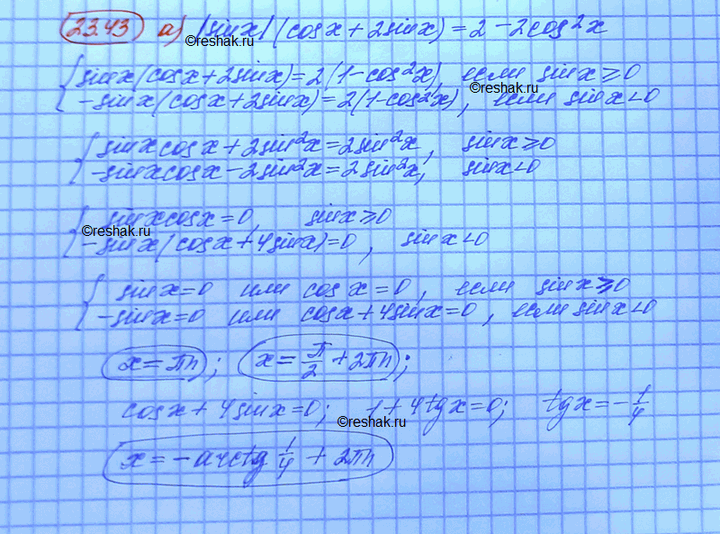 23.43 а) |sinx| (cosx + 2sinx) = 2 - 2cos²x
©reshak.ru
{ sinx(cosx + 2sinx) = 2(1 - cos²x), если sinx ≥ 0
©reshak.ru
-sinx(cosx + 2sinx) = 2(1 - cos²x), если sinx < 0
{ sinxcosx + 2sin²x = 2sin²x, sinx ≥ 0
-sinxcosx - 2sin²x = 2sin²x, sinx < 0
{ sinxcosx = 0, sinx ≥ 0
©reshak.ru
-sinx(cosx + 4sinx) = 0, sinx < 0
{ sinx = 0 или cosx = 0, если sinx ≥ 0
-sinx = 0 или cosx + 4sinx = 0, если sinx < 0
x = πn; x = π/2 + 2πn;
cosx + 4sinx = 0; 1 + 4tgx = 0; tgx = -1/4
©reshak.ru
x = -arctg 1/4 + 2πn